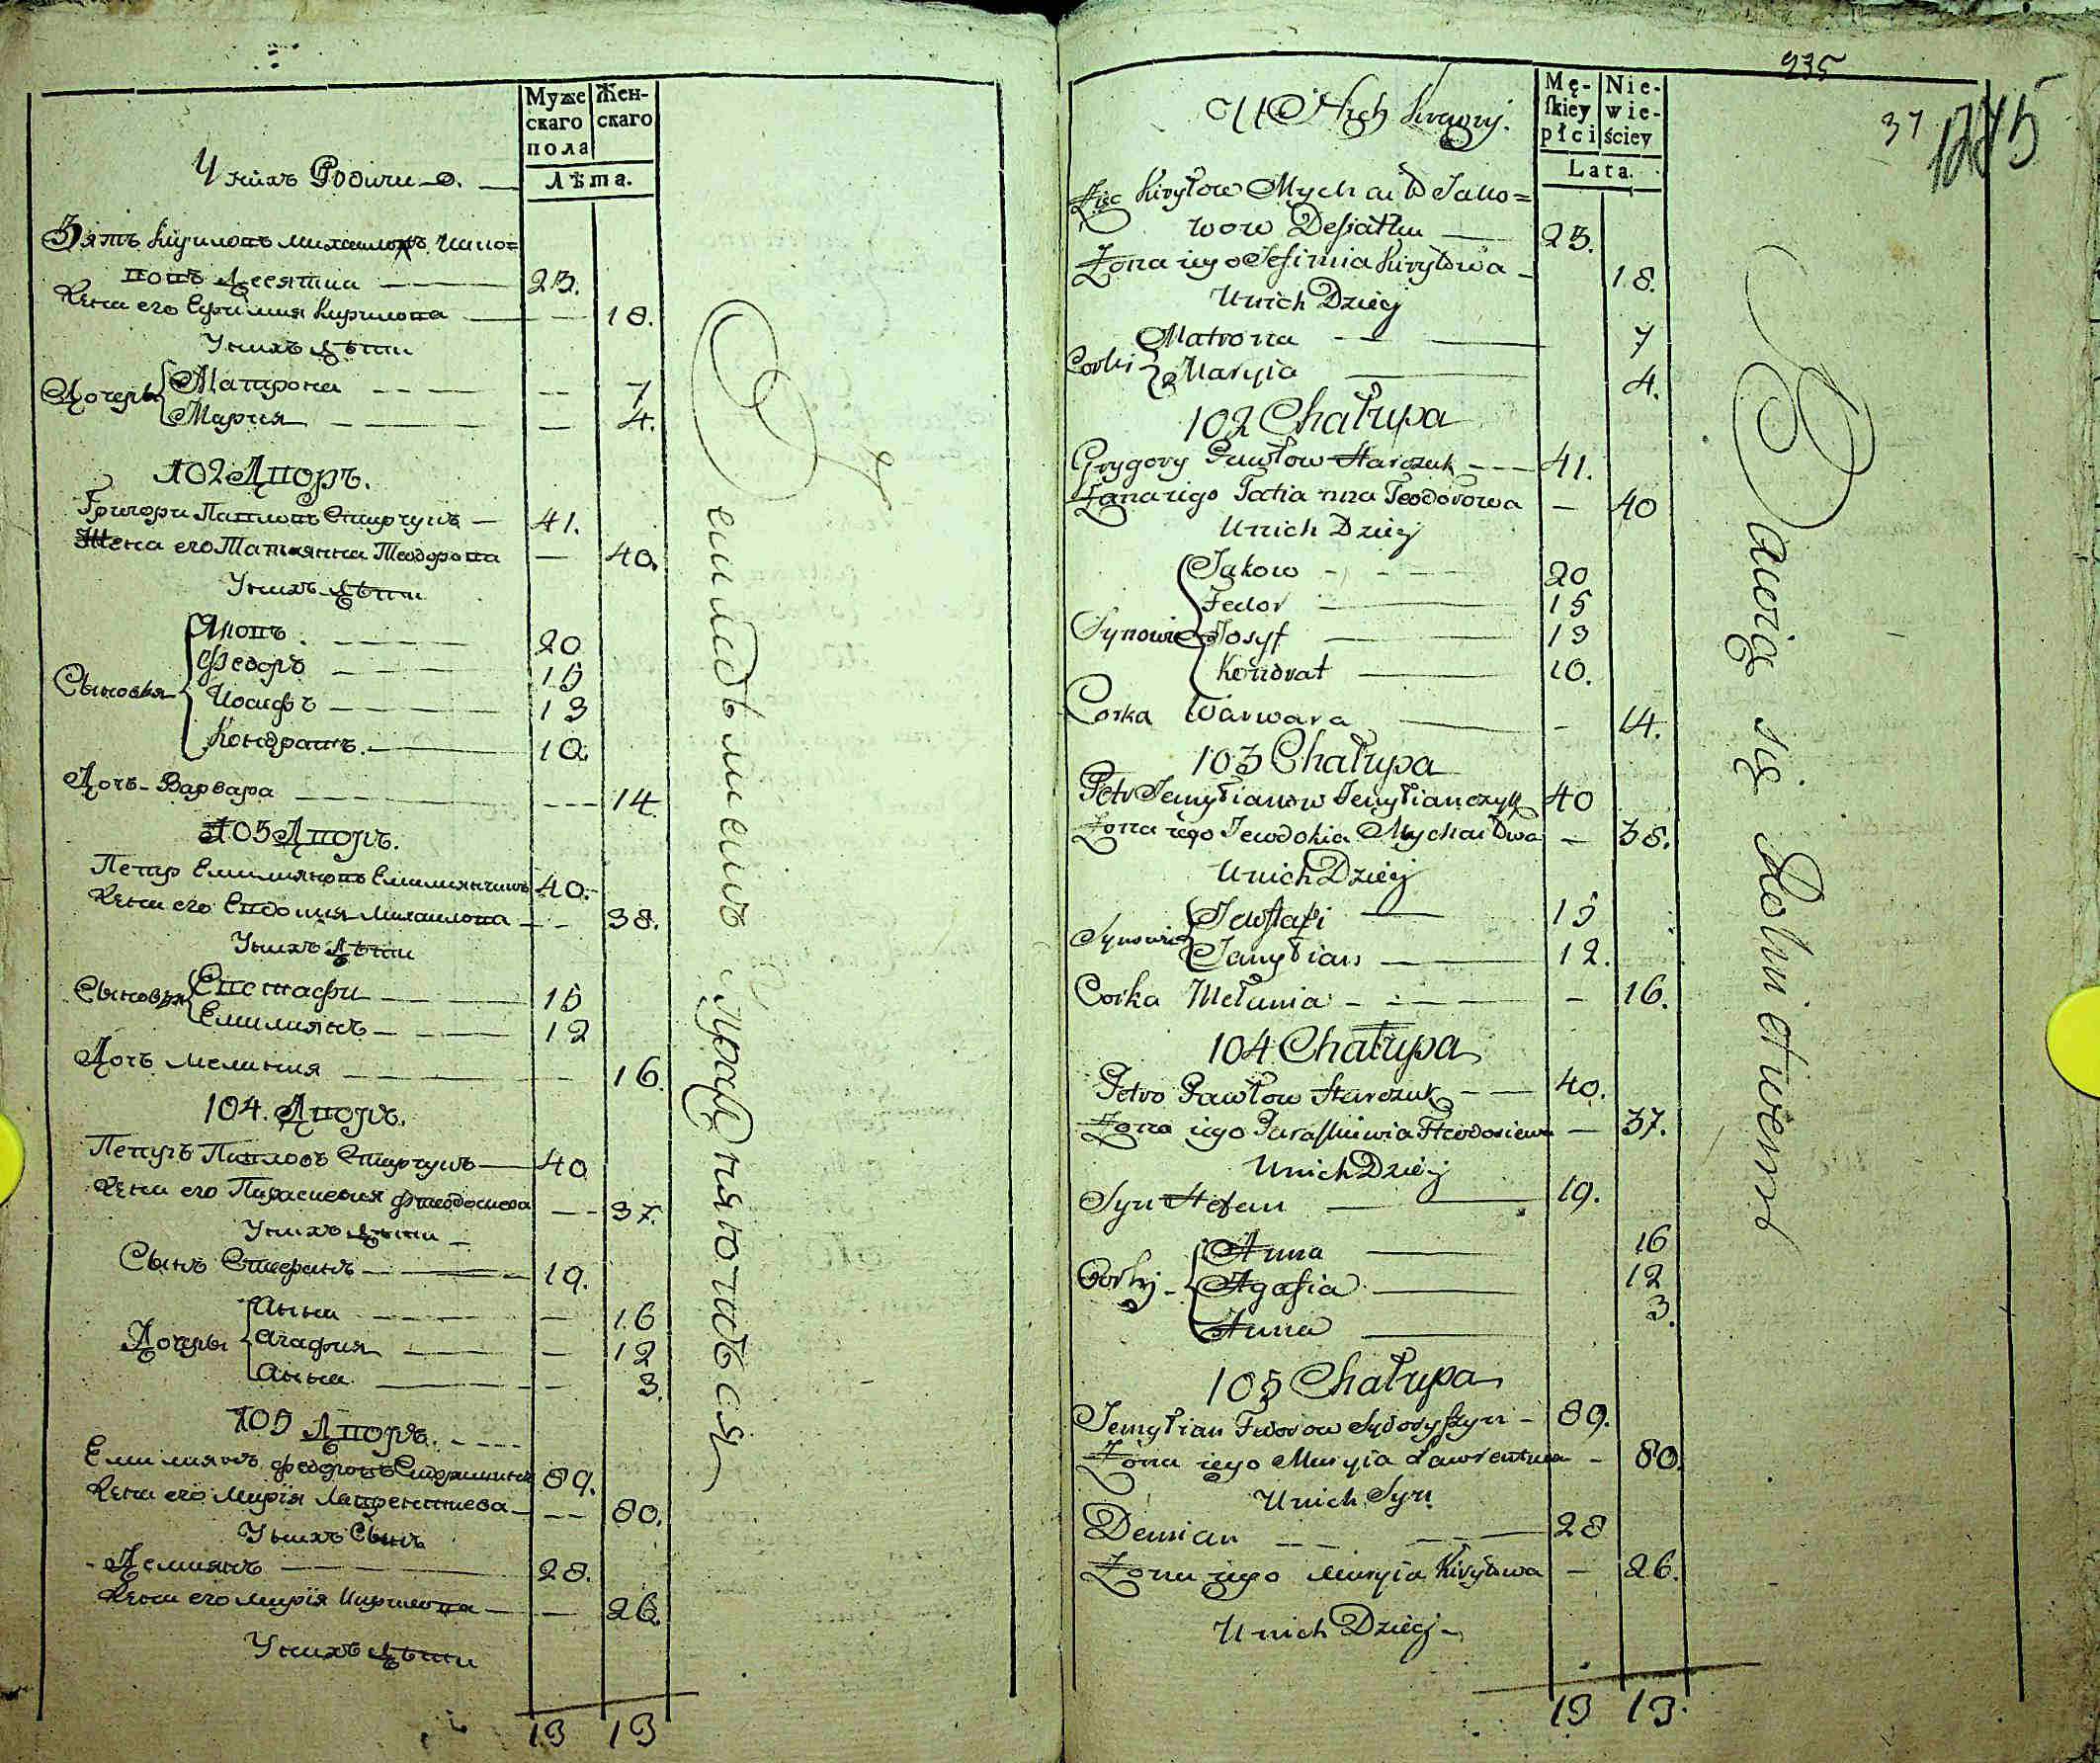 Муже
скаго
пола
Жен-
скаго
Лѣта.
У нихъ Родичи
Зять Кириловъ Михаиловъ Яково=
вовъ Десятка — 23.
Жена его Ефимия Кирилова — 18.
У нихъ Дѣти
Дочеры Матрона — 7
Мария — 4.
102 Дворъ.
Григори Павловъ Старчукъ — 41.
Жена его Татиянна Теодорова — 40.
У нихъ Дѣти
Яковъ — 20
Федоръ — 15
Сыновья Иосифъ — 13
Кондратъ — 10.
Дочъ Варвара — 14.
103 Дворъ.
Петръ Емилияновъ Емилиянчикъ 40.
Жена его Евдокия Михаилова — 38.
У нихъ Дѣти
Сыновья Евстафи — 15
Емилиянъ — 12
Дочъ Мелания — 16.
104. Дворъ.
Петръ Павловъ Старчукъ — 40
Жена его Параскевия Фтеодосиева — 37.
У нихъ Дѣти
Сынъ Стефанъ — 19.
Анна — 16
Дочеры Агафия — 12
Анна — 3.
105 Дворъ.
Емилиянъ Федоровъ 89.
Жена его Марїя Лаврентиева — 80.
У нихъ Сынъ
Демиянъ — 28.
Жена его Марїя Кирилова — 26.
У нихъ Дѣти
13 13
Земледѣлиемъ упражняютъся
935
37
1275
Mę-
ſkiey
płci
Nie-
wie-
ściey
Lata.
U Nich krewnj.
Zięc Kiryłow Mychaiło Jako=
wow Desiatka — 23.
Zona iego Jefimia Kiryłowa — 18.
U nich Dziecj
Matrona — 7
Corki Maryia — 4.
102 Chałupa
Grygory Pawłow Starczuk — 41.
Zona iego Tatianna Teodorowa — 40
U nich Dziecj
Jakow — 20
Fedor — 15
Synowie Josyf — 13
Kondrat — 10.
Corka Warwara — 14.
103 Chałupa
Petr Jemyłianow Jemyłianczyk 40
Zona iego Jewdokia Mychaiłowa — 38.
U nich Dziecj
Synowie Jewſtafi — 15
Jemyłian — 12.
Corka Mełania — 16.
104 Chałupa
Petro Pawłow Starczuk — 40.
Zona iego Paraſkiewia Fteodosiewa — 37.
U nich Dziecj
Syn Stefan — 19.
Anna — 16
Corkj Agafia — 12
Anna — 3.
105 Chałupa
Jemyłian Fedorow — 89.
Zona iego Maryia Ławrentiewa — 80.
U nich Syn
Demian — 28
Zona iego Maryia Kiryłowa — 26.
U nich Dziecj
13 13.
Bawią się Rolnictwem